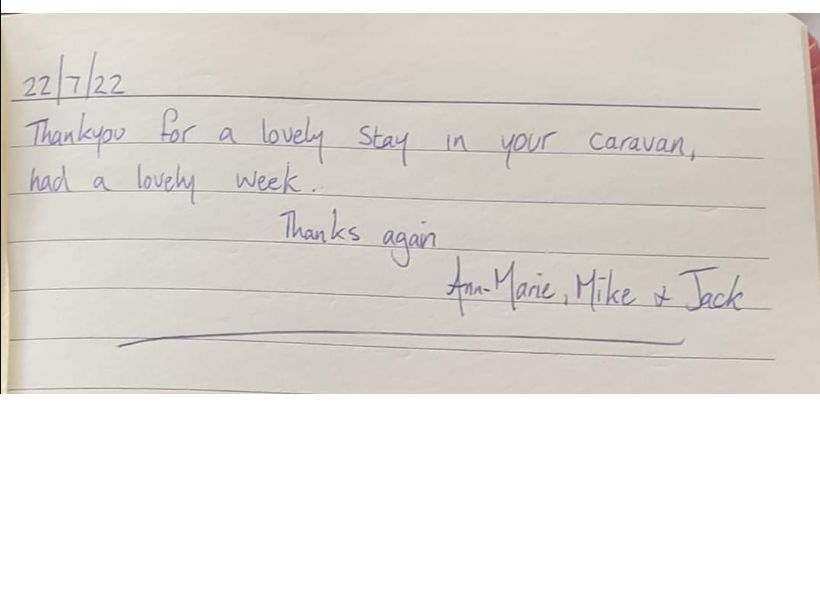 22/7/22
Thankyou for a lovely Stay in your caravan,
had a lovely week.
Thanks again
Ann-Marie, Mike & Jack